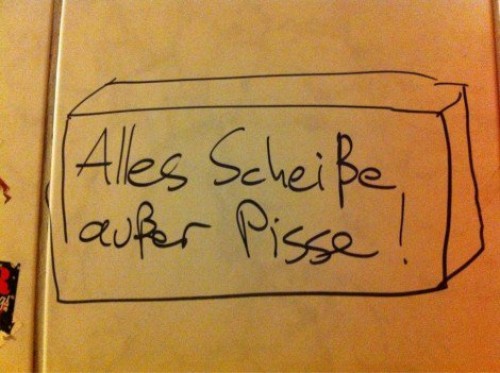 Alles Scheiße
außer Pisse!